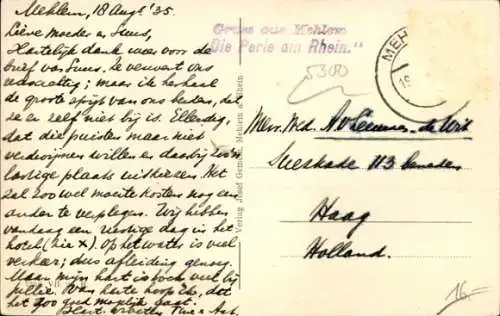 Mehlem, 18 Aug. '35.
Lieve moeder en Suus,
Hartelijk dank weer voor de
brief van Suus. Ze verwent ons
; maar ik herhaal
de groote spijt van ons beiden, dat
ze er zelf niet bij is. Ellendig,
dat die puisten maar niet
verdwijnen willen en daarbij zoo'n
lastige plaats uitkiezen. Het
zal zoo wel moeite kosten nog een
ander te verplegen. Wij hebben
vandaag een rustige dag in het
hotel (zie x). Op het water is veel
verkeer; dus afleiding genoeg.
Maar mijn hart is toch veel bij
jullie. Van harte hoop ik, dat
het zoo goed mogelijk gaat.
Hart. groeten
Gruss aus Mehlem
„Die Perle am Rhein."
MEH
5300
Verlag Josef Gemein, Mehlem a. Rhein
Mevr. Wed. A. v. Leeuwen-de Wit
Sueskade 113 beneden
Haag
Holland.
16.-